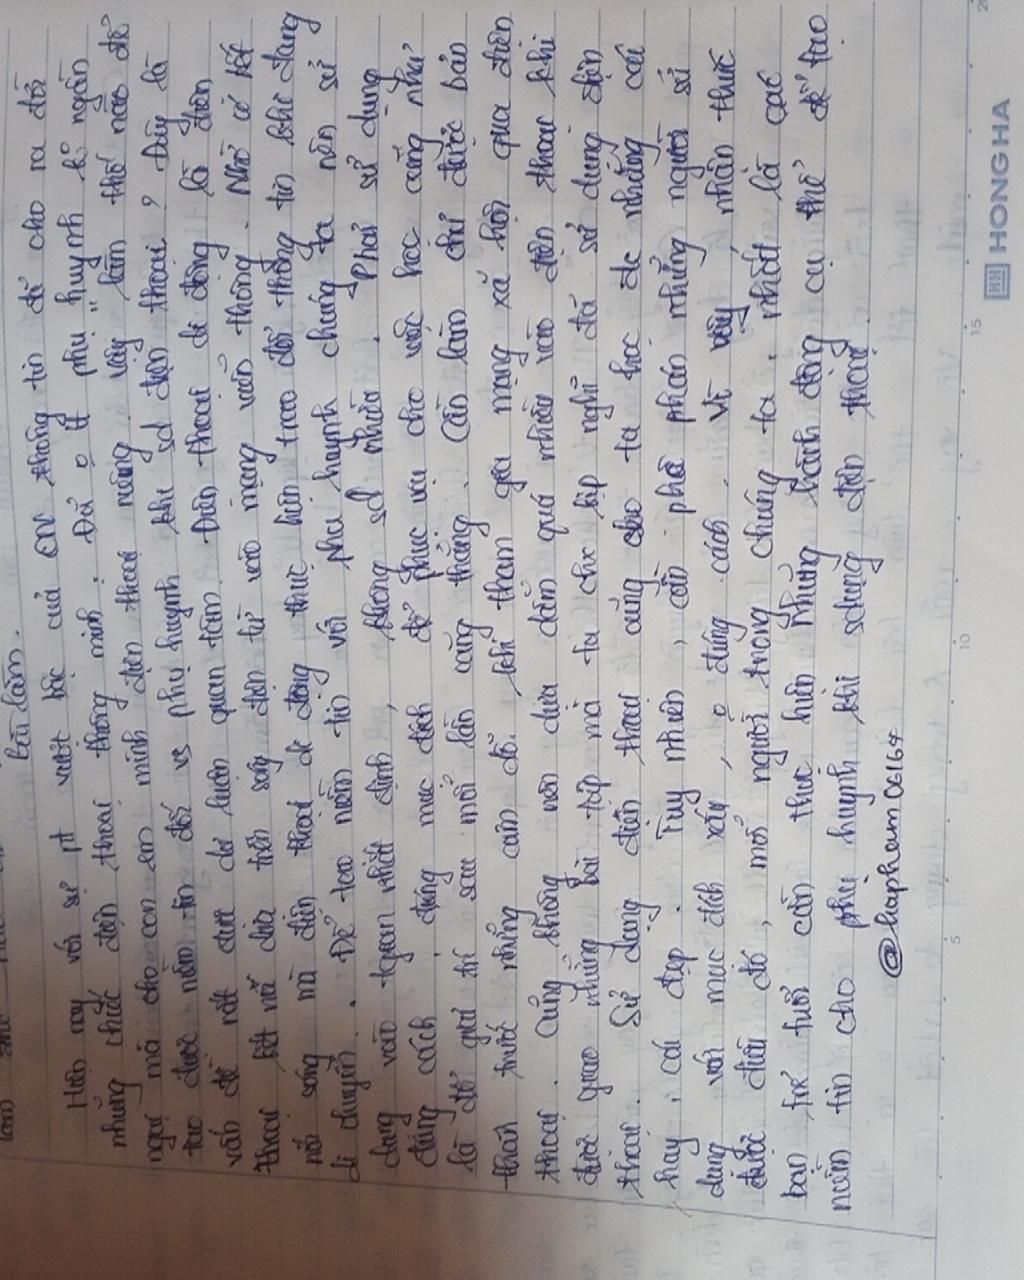 bài làm.
Hiện nay với sự pt vượt bậc của CN thông tin để cho ra đời
những chiếc điện thoại thông minh. Đã 0 ít phụ huynh k ngần
ngại mà cho con em mình điện thoại riêng. vậy làm thế nào để
tạo được niềm tin đối vs phụ huynh khi sd điện thoại? Đây là
vấn đề rất được dư luận quan tâm. Điện thoại di động là điện
thoại kết nối dựa trên sóng điện từ vào mạng viễn thông. Nhờ có kết
nối sóng mà điện thoại di động thực hiện trao đổi thông tin khi đang
di chuyển. Để tạo niềm tin với phụ huynh chúng ta nên sử
dụng vào tgian nhất định, không sd nhiều. Phải sử dụng
đúng cách, đúng mục đích, để phục vụ cho việc học cũng như
là để giải trí sau mỗi lần căng thẳng. Cần làm chủ được bản
thân trước những cám dỗ, khi tham gia mạng xã hội qua điện
thoại. Cũng không nên dựa dẫm quá nhiều vào điện thoại khi
được giao những bài tập mà ta chx kịp nghĩ đã sử dụng điện
thoại. Sử dụng điện thoại cũng cho ta học đc những cái
hay, cái đẹp. Tuy nhiên, cần phê phán những người sử
dụng với mục đích xấu, 0 đúng cách. Vì vậy, nhận thức
được điều đó, mỗi người trong chúng ta, nhất là các
bạn trẻ tuổi cần thực hiện những hành động cụ thể để tạo
niềm tin cho phụ huynh khi sdụng điện thoại.
@hapham06164
HH HONG HA
5
10
15